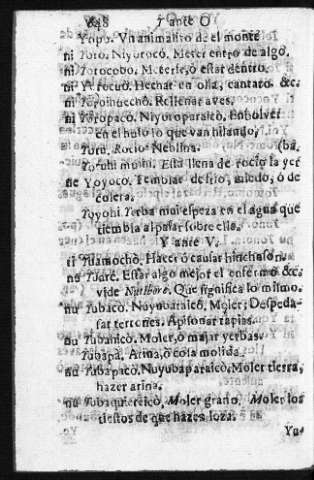 648 Y ante O
Yopo. Vn animalito de el monte
ni Yoro. Niyorocò. Meter entro de algo.
ni Yorocobo. Meterse, ò estar dentro.
ni Yorocuò. Hechar en olla, cantaro &c.
ni Yoroihuechò. Rellenar aves.
ni Yoropacò. Niyoroparaicò, Enbolver
en el huso lo que van hilando,
Yoru. Rocio Neblina. (ba.
Yoruhi moihi. Està llena de rocio la yer
ñe Yoyoco. Temblar de frio, miedo, ò de
colera.
Yoyohi Yerba mui espeza en el agua que
tiembla al pasar sobre ella.
Y ante V.
ti Yuamochò. Hacer ò causar hinchason.
nu Yuare. Estar algo mejor el enfermo &c.
vide Que significa lo mismo.
nu Yubacò. Nuyubaraicò. Moler; Despeda-
sar terrones. Apisonar tapias.
nu Yubanicò. Moler, ò majar yerbas.
Yubapà. Arina, ò cosa molida.
nu Yubapacò. Nuyubaparaicò. Moler tierra,
hazer arina.
nu Yubaquireicò, Moler grano, Moler los
tiestos de que hazes loza.
Yu-